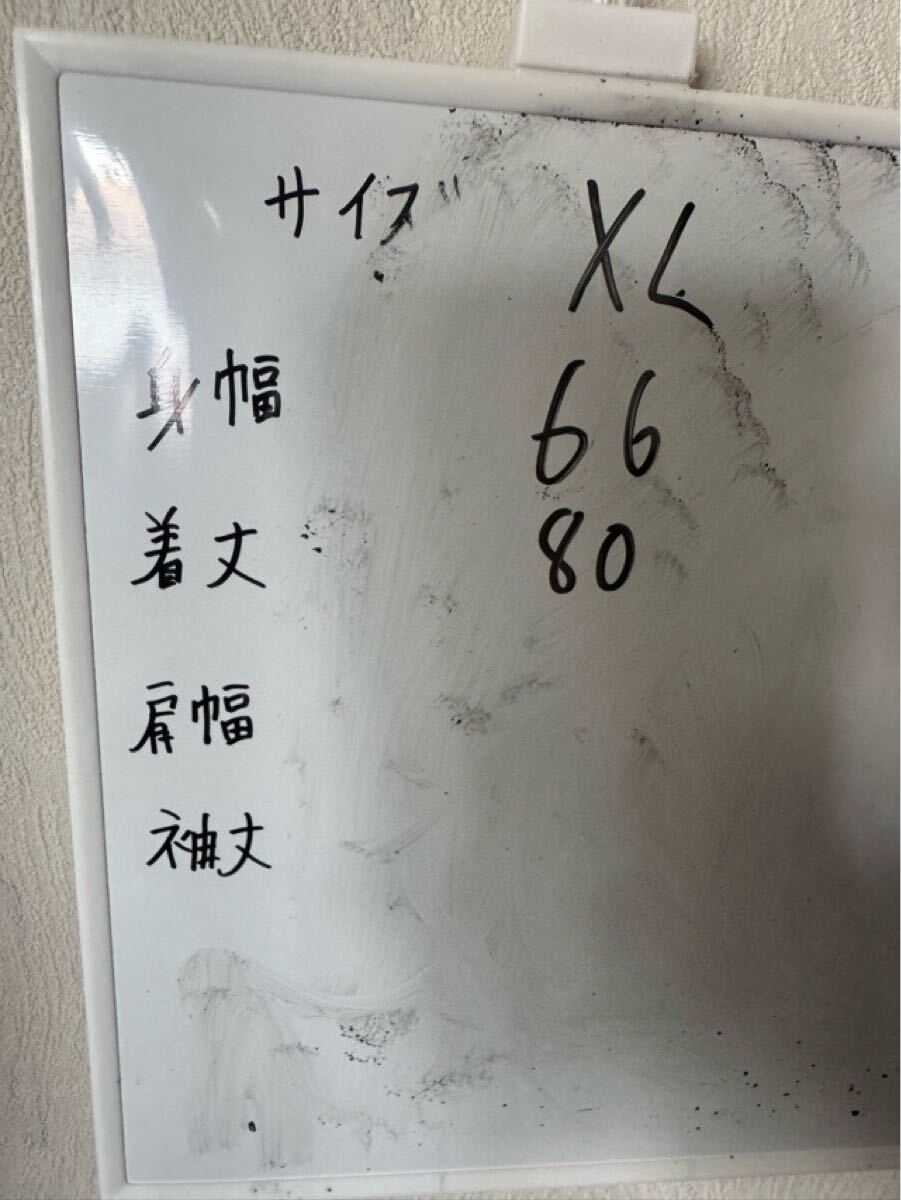 サイズ XL
身幅 66
着丈 80
肩幅
袖丈